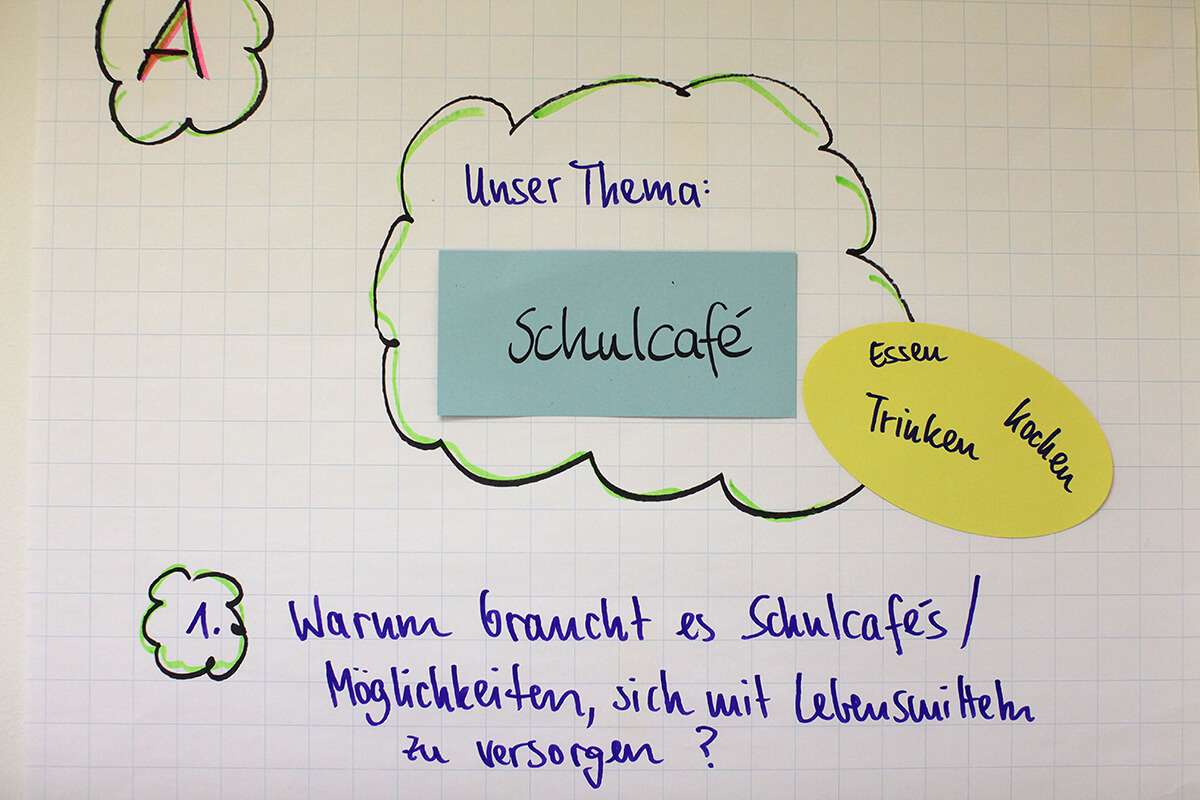 A
Unser Thema:
Schulcafé
Essen
Trinken
Kochen
1. Warum braucht es Schulcafés /
Möglichkeiten, sich mit Lebensmitteln
zu versorgen ?